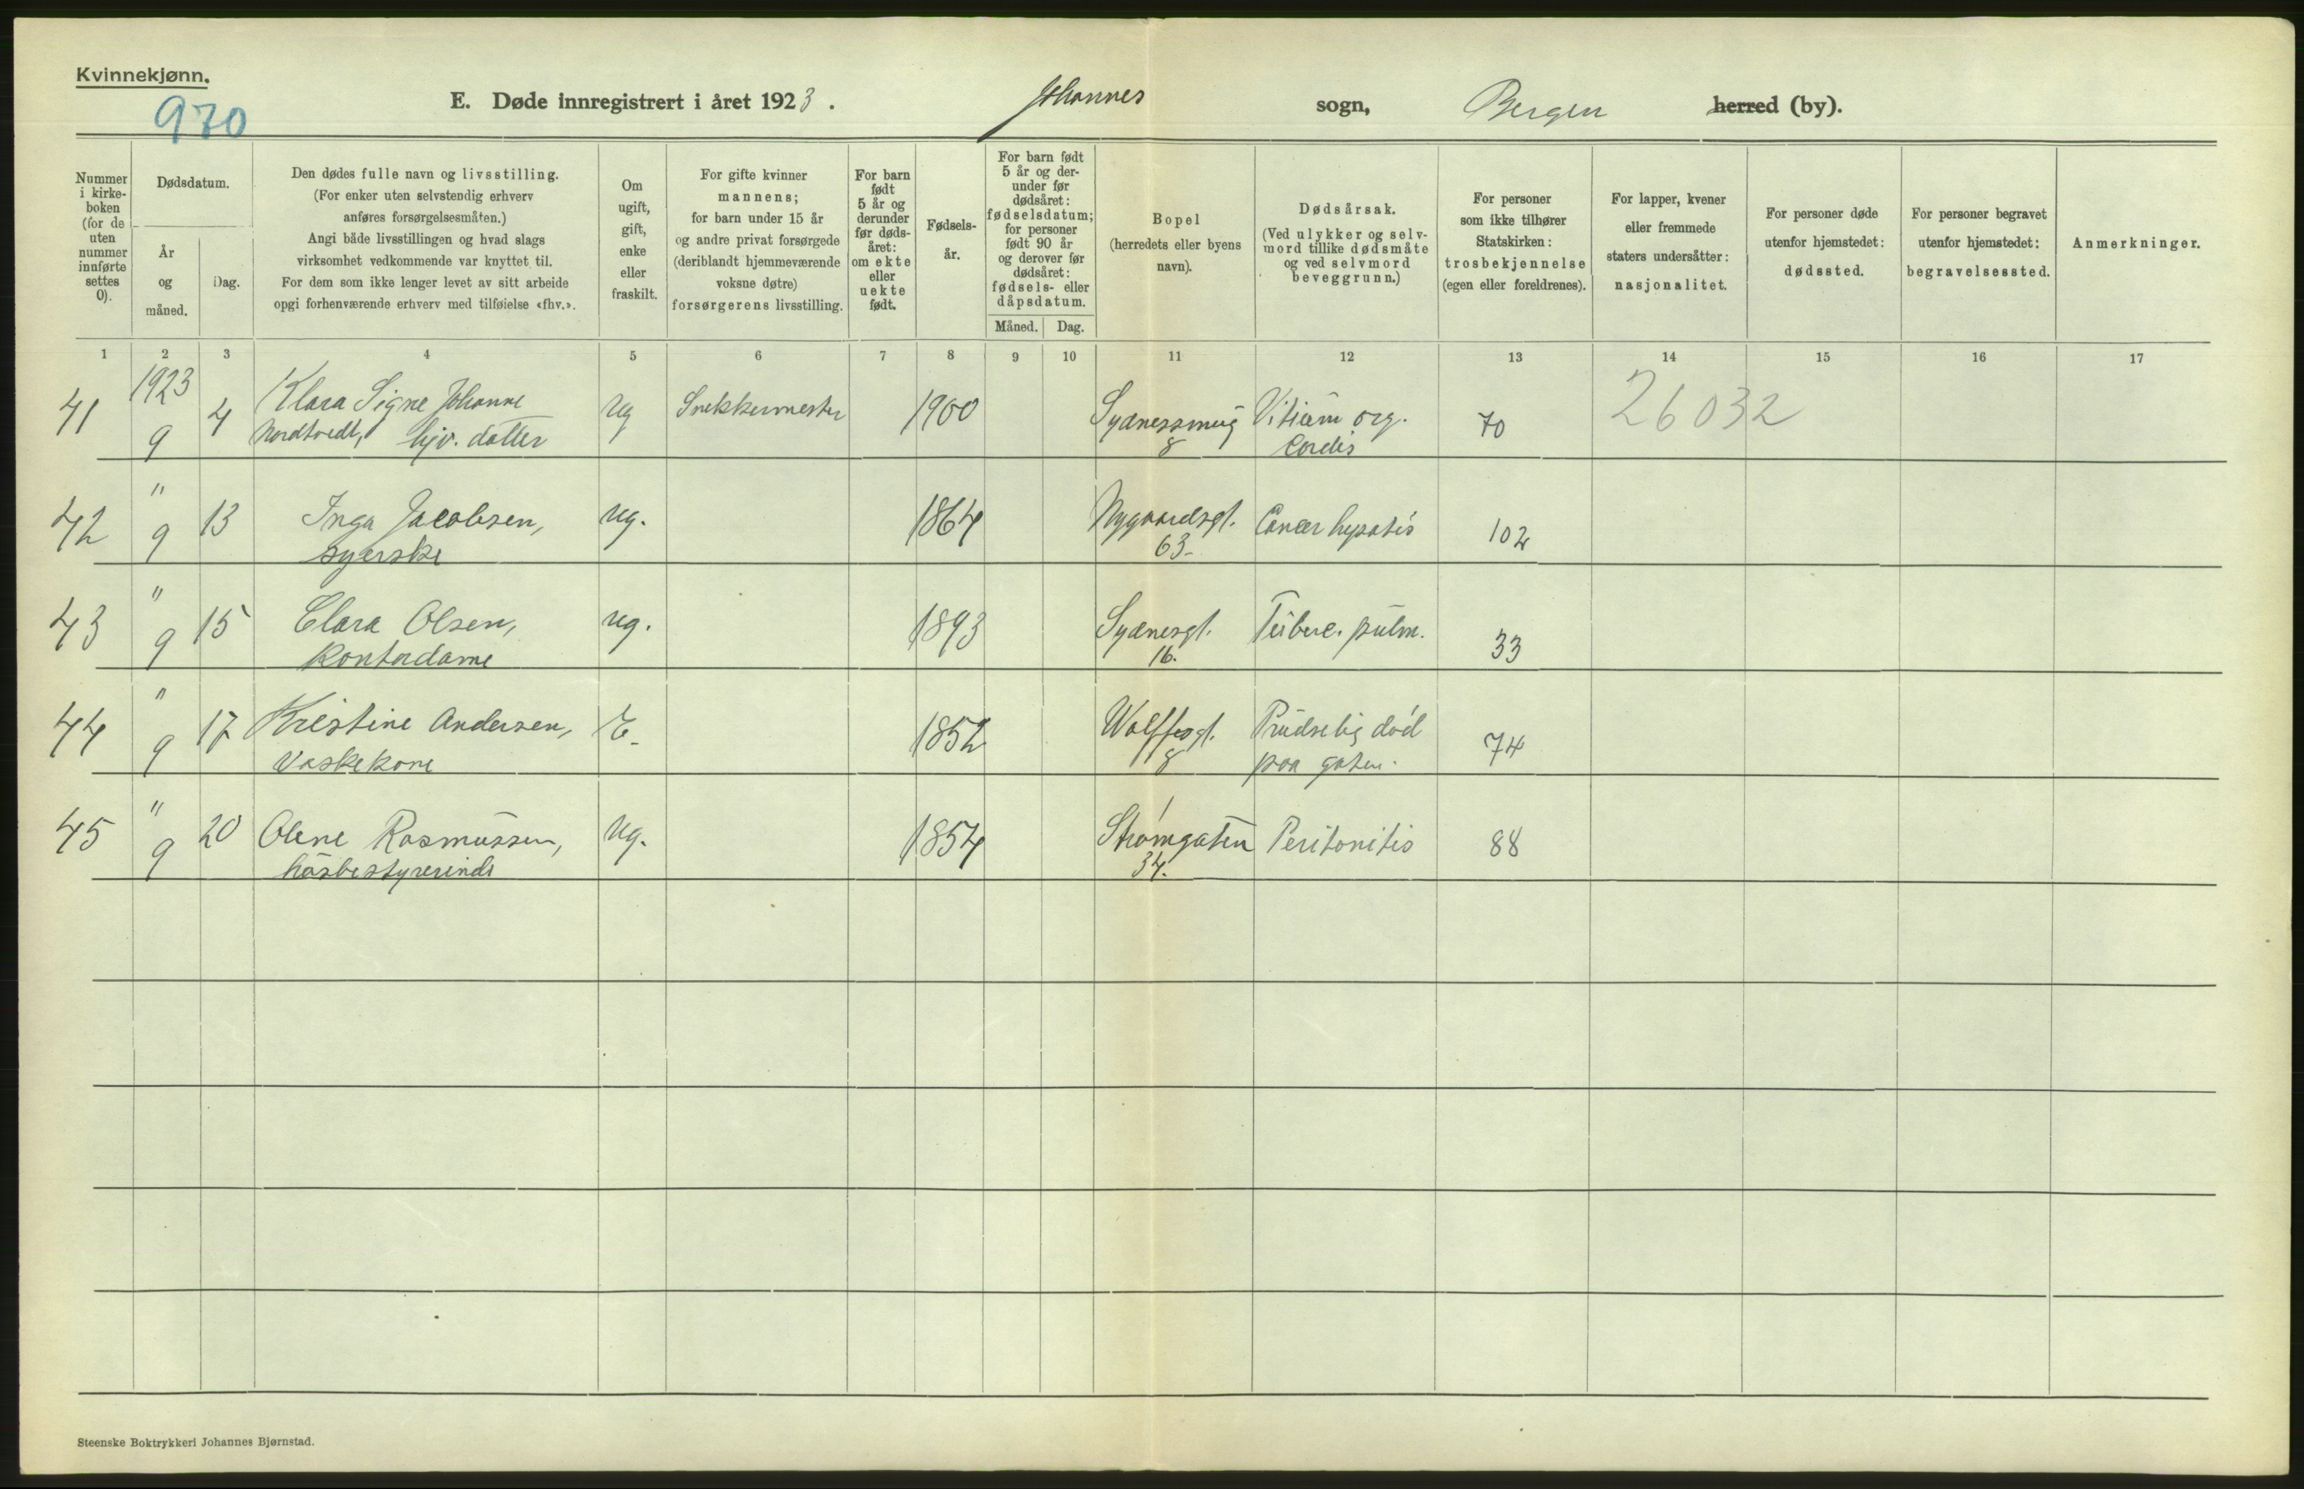 Kvinnekjønn.
970
E. Døde innregistrert i året 1923. Johannes sogn, Bergen herred (by).
Nummer i kirke-boken (for de uten nummer innførte settes 0).
Dødsdatum.
År og måned.
Dag.
Den dødes fulle navn og livsstilling.
(For enker uten selvstendig erhverv
anføres forsørgelsesmåten.)
Angi både livsstillingen og hvad slags
virksomhet vedkommende var knyttet til.
For dem som ikke lenger levet av sitt arbeide
opgi forhenværende erhverv med tilføielse «fhv.».
Om
ugift,
gift,
enke
eller
fraskilt.
For gifte kvinner
mannens;
for barn under 15 år
og andre privat forsørgede
(deriblandt hjemmeværende
voksne døtre)
forsørgerens livsstilling.
For barn
født
5 år og
derunder
før døds-
året:
om ekte
eller
uekte
født.
Fødsels-
år.
For barn født
5 år og der-
under før
dødsåret:
fødselsdatum;
for personer
født 90 år
og derover før
dødsåret:
fødsels- eller
dåpsdatum.
Måned. Dag.
Bopel
(herredets eller byens
navn).
Dødsårsak.
(Ved ulykker og selv-
mord tillike dødsmåte
og ved selvmord
beveggrunn.)
For personer
som ikke tilhører
Statskirken:
trosbekjennelse
(egen eller foreldrenes).
For lapper, kvener
eller fremmede
staters undersåtter:
nasjonalitet.
For personer døde
utenfor hjemstedet:
dødssted.
For personer begravet
utenfor hjemstedet:
begravelsessted.
Anmerkninger.
1 2 3 4 5 6 7 8 9 10 11 12 13 14 15 16 17
41 1923 9 4 Klara Signe Johanne
Nordtvedt, hjv. datter
ug Snekkermester 1900 Sydnessmug
8
Vitium org.
Cordis
70 26032
42 " 9 13 Inga Jacobsen,
syerske
ug. 1864 Nygaardsgt.
63-
Cancer hepatis 102
43 " 9 15 Clara Olsen,
Kontordame
ug. 1893 Sydnesgt.
16.
Tuberc. pulm. 33
44 " 9 17 Kristine Andersen,
Vaskekone
E. 1852 Wolffsgt.
8
Pludselig död
paa gaten.
74
45 " 9 20 Olene Rasmussen,
husbestyrerinde
ug. 1854 Strömgaten
34.
Peritonitis 88
Steenske Boktrykkeri Johannes Bjørnstad.